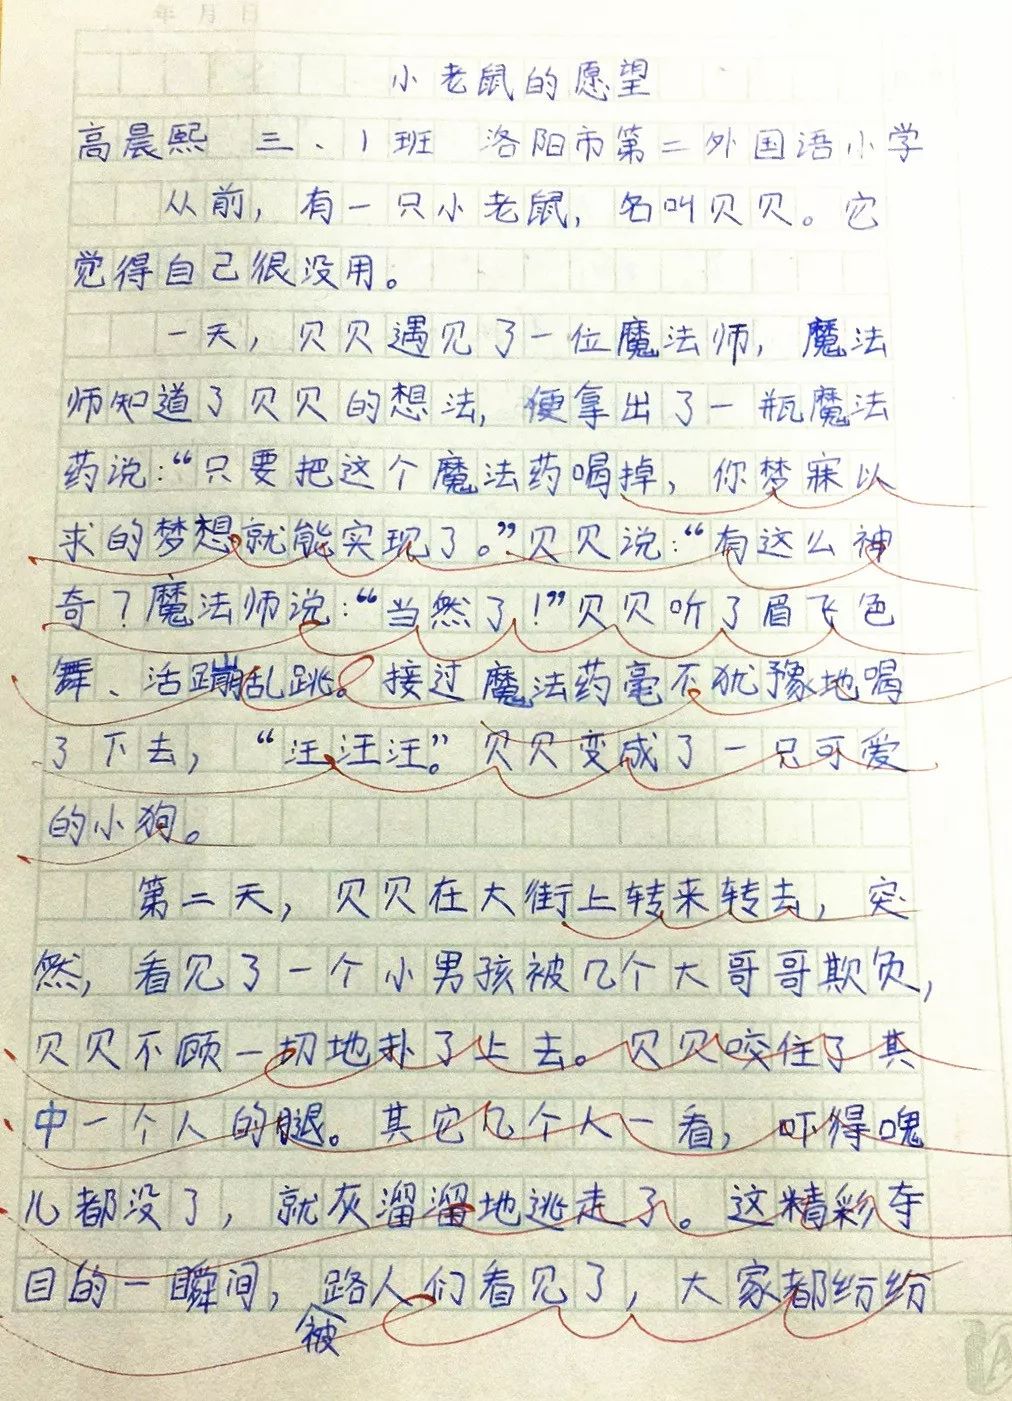 年 月 日
小老鼠的愿望
高晨熙 三、1班 洛阳市第二外国语小学
从前，有一只小老鼠，名叫贝贝。它
觉得自己很没用。
一天，贝贝遇见了一位魔法师，魔法
师知道了贝贝的想法，便拿出了一瓶魔法
药说：“只要把这个魔法药喝掉，你梦寐以
求的梦想就能实现了。”贝贝说：“有这么神
奇？魔法师说：“当然了！”贝贝听了眉飞色
舞、活蹦乱跳。接过魔法药毫不犹豫地喝
了下去，“汪汪汪。”贝贝变成了一只可爱
的小狗。
第二天，贝贝在大街上转来转去，突
然，看见了一个小男孩被几个大哥哥欺负，
贝贝不顾一切地扑了上去。贝贝咬住了其
中一个人的腿。其它几个人一看，吓得魂
儿都没了，就灰溜溜地逃走了。这精彩夺
目的一瞬间，路人们看见了，大家都纷纷
被